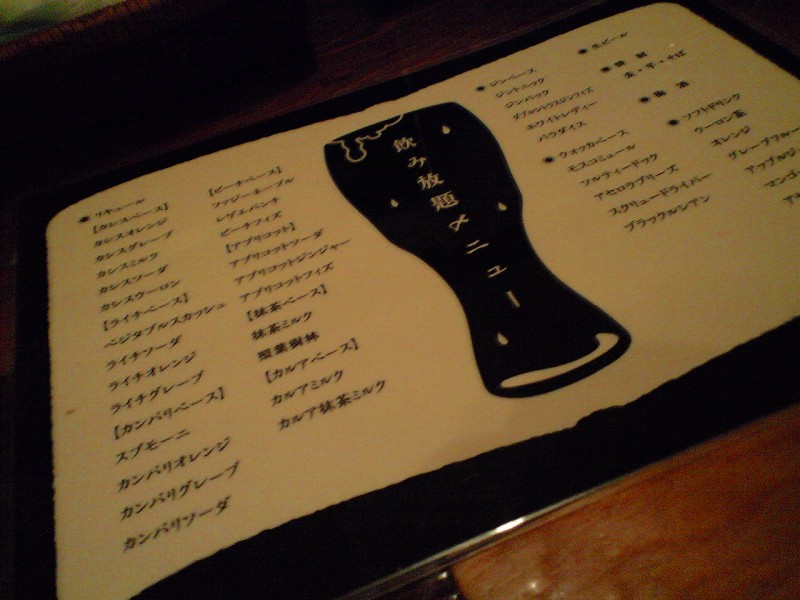 ●リキュール
【カシスベース】
カシスオレンジ
カシスグレープ
カシスミルク
カシスソーダ
カシスウーロン
【ライチベース】
ベジタブルスカッシュ
ライチソーダ
ライチオレンジ
ライチグレープ
【カンパリベース】
スプモーニ
カンパリオレンジ
カンパリグレープ
カンパリソーダ
【ピーチベース】
ファジーネーブル
レゲエパンチ
ピーチフィズ
【アプリコット】
アプリコットソーダ
アプリコットジンジャー
アプリコットフィズ
【抹茶ベース】
抹茶ミルク
照葉樹林
【カルアベース】
カルアミルク
カルア抹茶ミルク
飲み放題メニュー
●ジンベース
ジントニック
ジンバック
ダブルシトラスジンフィズ
ホワイトレディー
パラダイス
●ウォッカベース
モスコミュール
ソルティードック
アセロラブリーズ
スクリュードライバー
ブラックルシアン
●生ビール
●焼酎
麦・芋・そば
●梅酒
●ソフトドリンク
ウーロン茶
オレンジ
グレープフルー
アップルジ
マンゴ